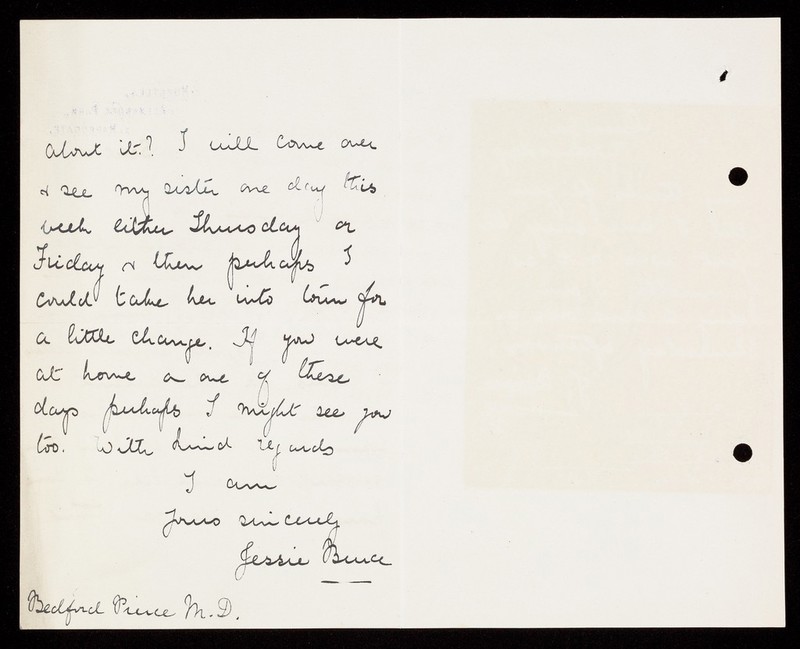 about it.? I will come over
& see my sister one day this
week either Thursday or
Friday & then perhaps I
could take her into town for
a little change. If you were
at home on one of these
days perhaps I might see you
too. With kind regards
I am
Yours sincerely
Jessie Bruce
Bedford Pierce M.D.